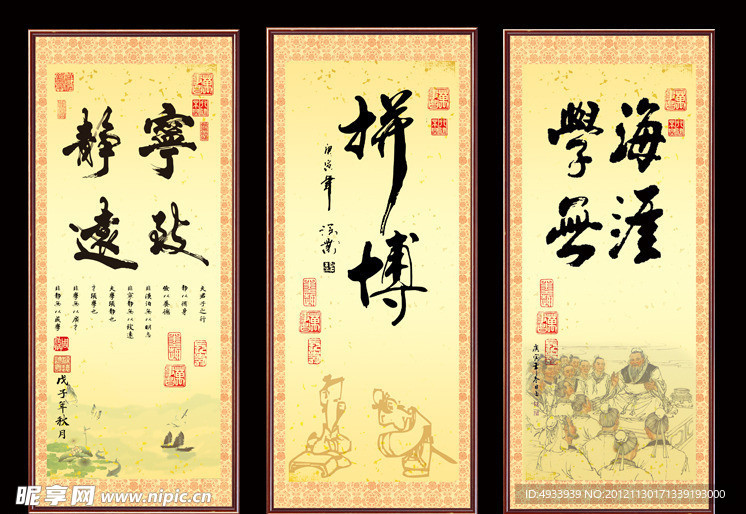 寧致
靜遠
夫君子之行
静以修身
儉以養德
非澹泊無以明志
非寧静無以致遠
夫學須静也
才須學也
非學無以廣才
非静無以成學
戊子年秋月
拼搏
庚寅年
海涯
學無
庚寅年
昵享网 www.nipic.cn
ID:4933939 NO:20121130171339193000